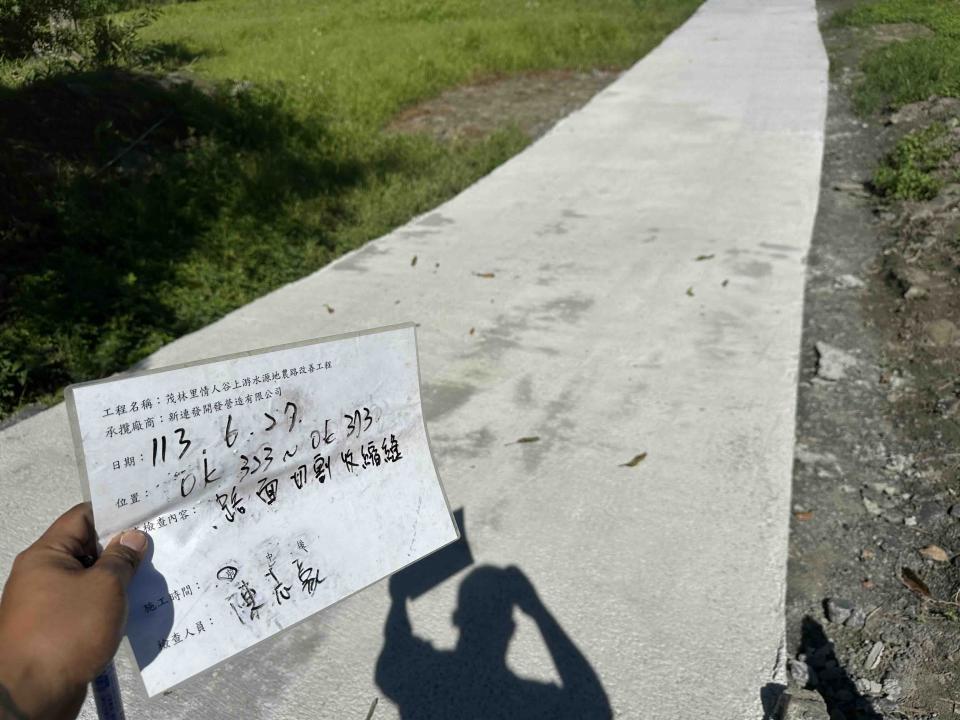 工程名稱：茂林里情人谷上游水源地農路改善工程
承攬廠商：新連發開發營造有限公司
日期：113.6.29.
位置：0k 323～0k 393
檢查內容：路面切割收縮縫
施工時間：前 中 後
檢查人員：陳志豪